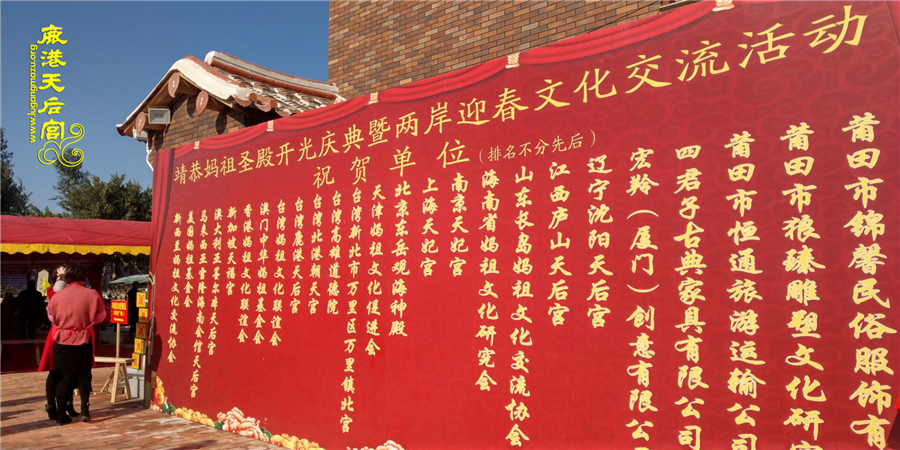 鹿港天后宫
www.lugangmazu.org
靖恭妈祖圣殿开光庆典暨两岸迎春文化交流活动
祝贺单位（排名不分先后）
莆田市锦馨民俗服饰有
莆田市狼臻雕塑文化研
莆田市恒通旅游运输公司
四君子古典家具有限公司
宏羚（厦门）创意有限公
辽宁沈阳天后宫
江西庐山天后宫
山东长岛妈祖文化交流协会
海南省妈祖文化研究会
南京天妃宫
上海天妃宫
北京东岳观海神殿
天津妈祖文化促进会
台湾新北市万里区万里镇北宫
台湾高雄道德院
台湾北港朝天宫
台湾鹿港天后宫
台湾妈祖文化联谊会
澳门中华妈祖基金会
香港妈祖文化联谊会
新加坡天福宫
澳大利亚墨尔本天后宫
马来西亚雪隆海南会馆天后宫
美国妈祖基金会
新西兰妈祖文化交流协会